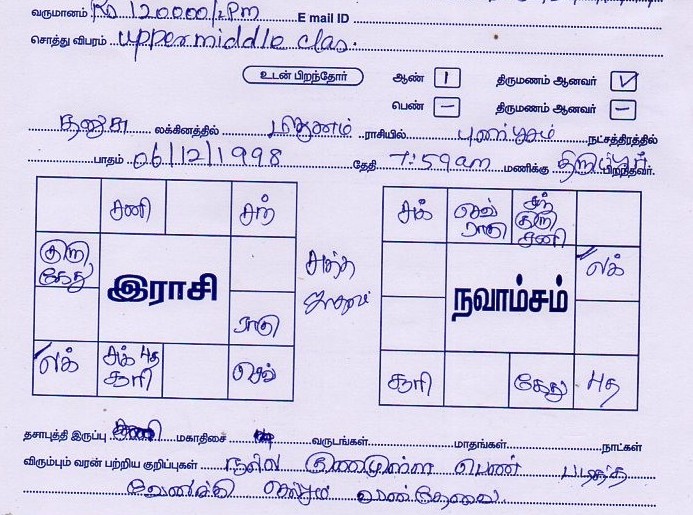 வருமானம் Rs 120000/.Pm E mail ID
சொத்து விபரம் uppermiddle clas.
உடன் பிறந்தோர் ஆண் 1 திருமணம் ஆனவர் ✓
பெண் – திருமணம் ஆனவர் –
தனுசு லக்கினத்தில் மிதுனம் ராசியில் புனர்பூசம் நட்சத்திரத்தில்
பாதம் 06/12/1998 தேதி 7:59am மணிக்கு திருப்பூர் பிறந்தவர்.
சனி சந்
குரு கேது
இராசி
ராகு
லக் சுக் புத சூரி செவ்
சுக் செவ் ராகு சந் குரு சனி
லக்
நவாம்சம்
சூரி கேது புத
தசாபுத்தி இருப்பு மகாதிசை வருடங்கள் மாதங்கள் நாட்கள்
விரும்பும் வரன் பற்றிய குறிப்புகள் நல்ல குணமுள்ள பெண் படித்த